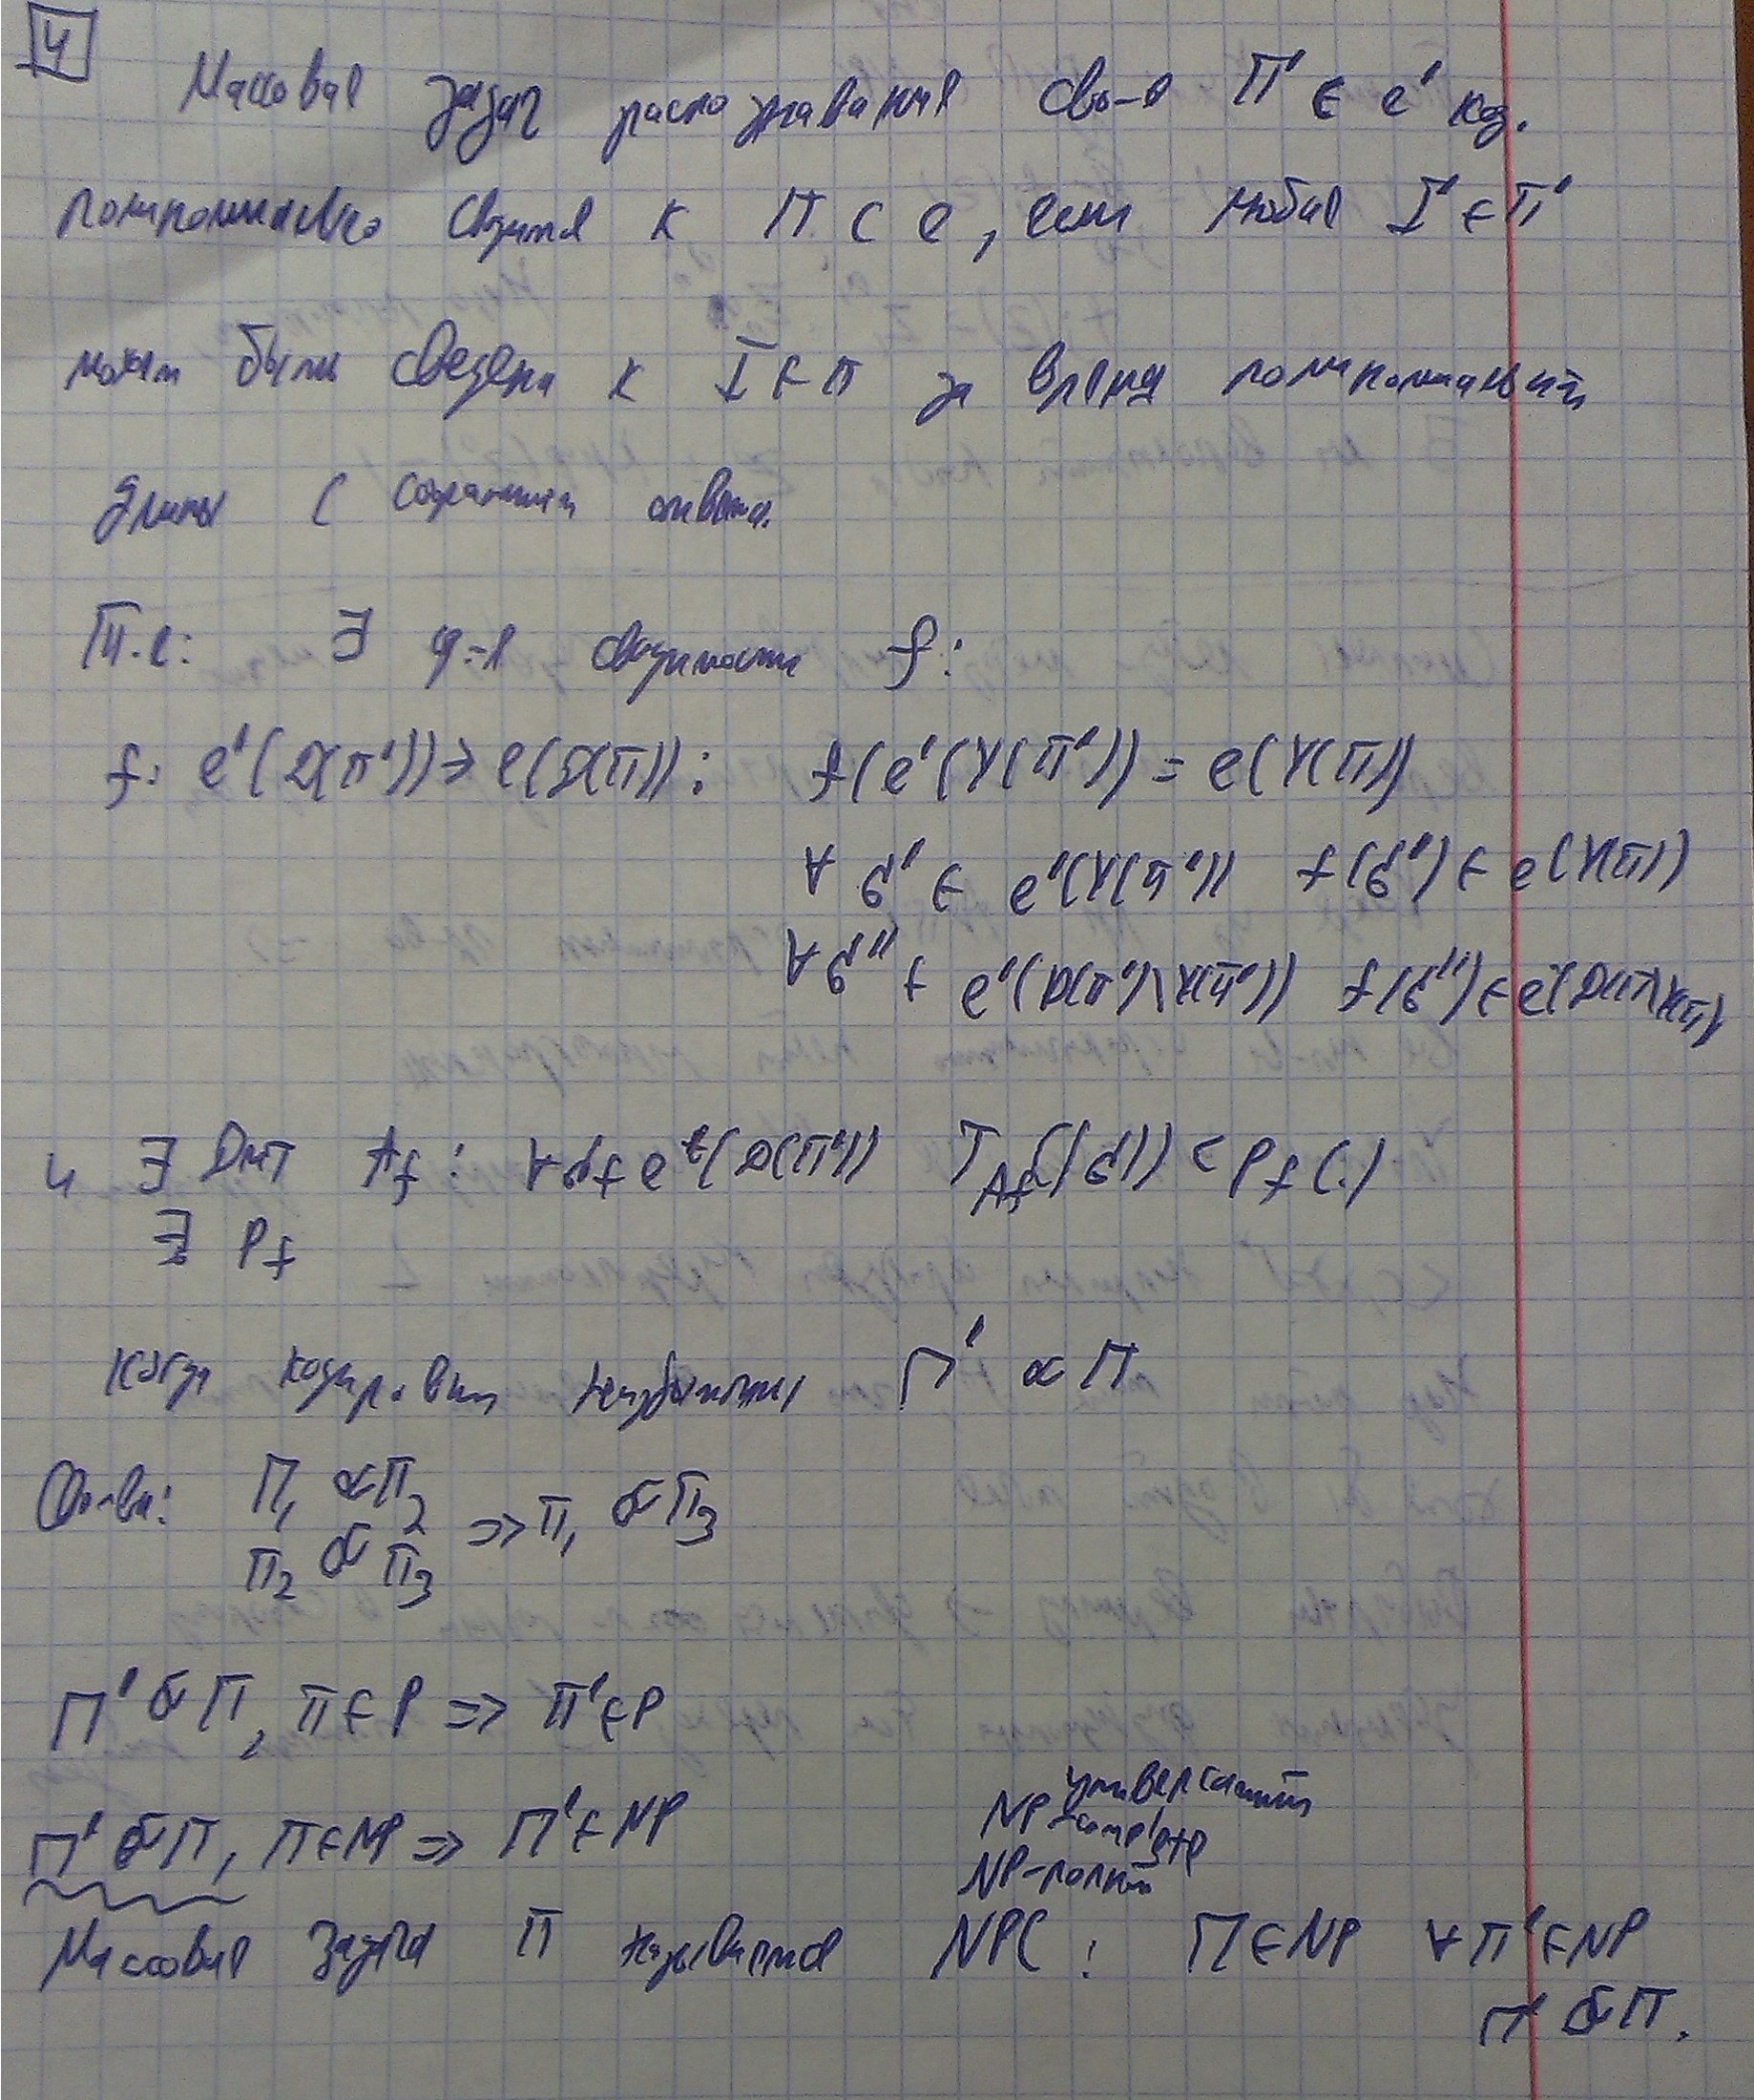 4
Массовая задач распознавания сво-в П' с e' код.
полиномиально сводится к П с e, если любая I' ∈ П'
может быть сведена к I ∈ П за время полиномиальный
длины с сохранением ответа.
Т.е: ∃ ф-я сводимости f:
f: e'(D(П')) → e(D(П)): f(e'(Y(П')) = e(Y(П))
∀ σ' ∈ e'(Y(П')) f(σ') ∈ e(Y(П))
∀ σ'' ∈ e'(D(П')\Y(П')) f(σ'') ∈ e(D(П)\Y(П))
и ∃ ДМТ A_f: ∀ σ ∈ e'(D(П')) T_{A_f}(|σ|) < p_f(.)
∃ p_f
Когда кодировки П' ∝ П
П₁ ∝ П₂
⇒ П₁ ∝ П₃
П₂ ∝ П₃
П' ∝ П, П ∈ P ⇒ П' ∈ P
П' ∝ П, П ∈ NP ⇒ П' ∈ NP
универсальный
NP-complete
NP-полный
Массовая задача П называется NPC: П ∈ NP ∀ П' ∈ NP
П' ∝ П.